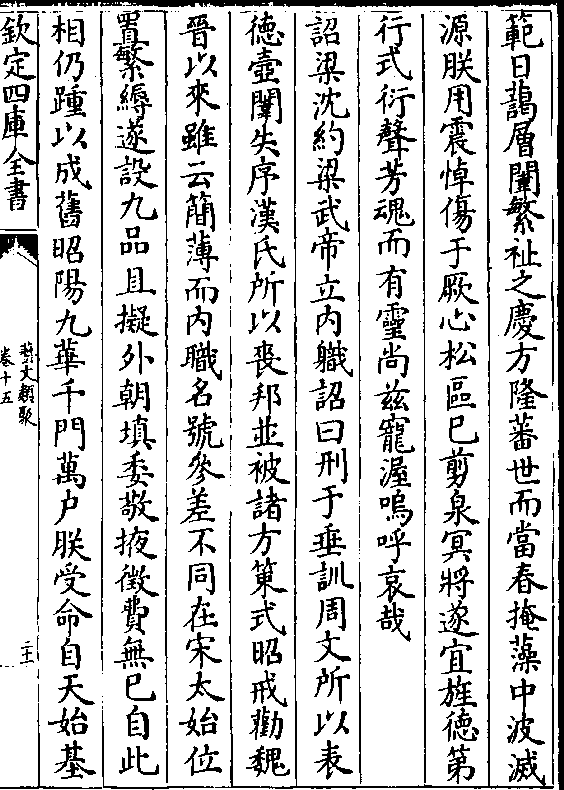 範日藹層闈繁祉之慶方隆蕃世而當春掩藻中波滅
源朕用震悼傷于厥心松區已剪泉冥將遂宜旌徳第
行式衍聲芳魂而有靈尚兹寵渥嗚呼哀哉
詔梁沈約梁武帝立内職詔曰刑于垂訓周文所以表
徳壼闈失序漢氏所以喪邦並被諸方策式昭戒勸魏
晉以來雖云簡薄而内職名號參差不同在宋太始位
置繁縟遂設九品且擬外朝填委敬掖徴費無已自此
相仍踵以成舊昭陽九華千門萬户朕受命自天始基
欽定四庫全書
藝文類聚
卷十五
二十二